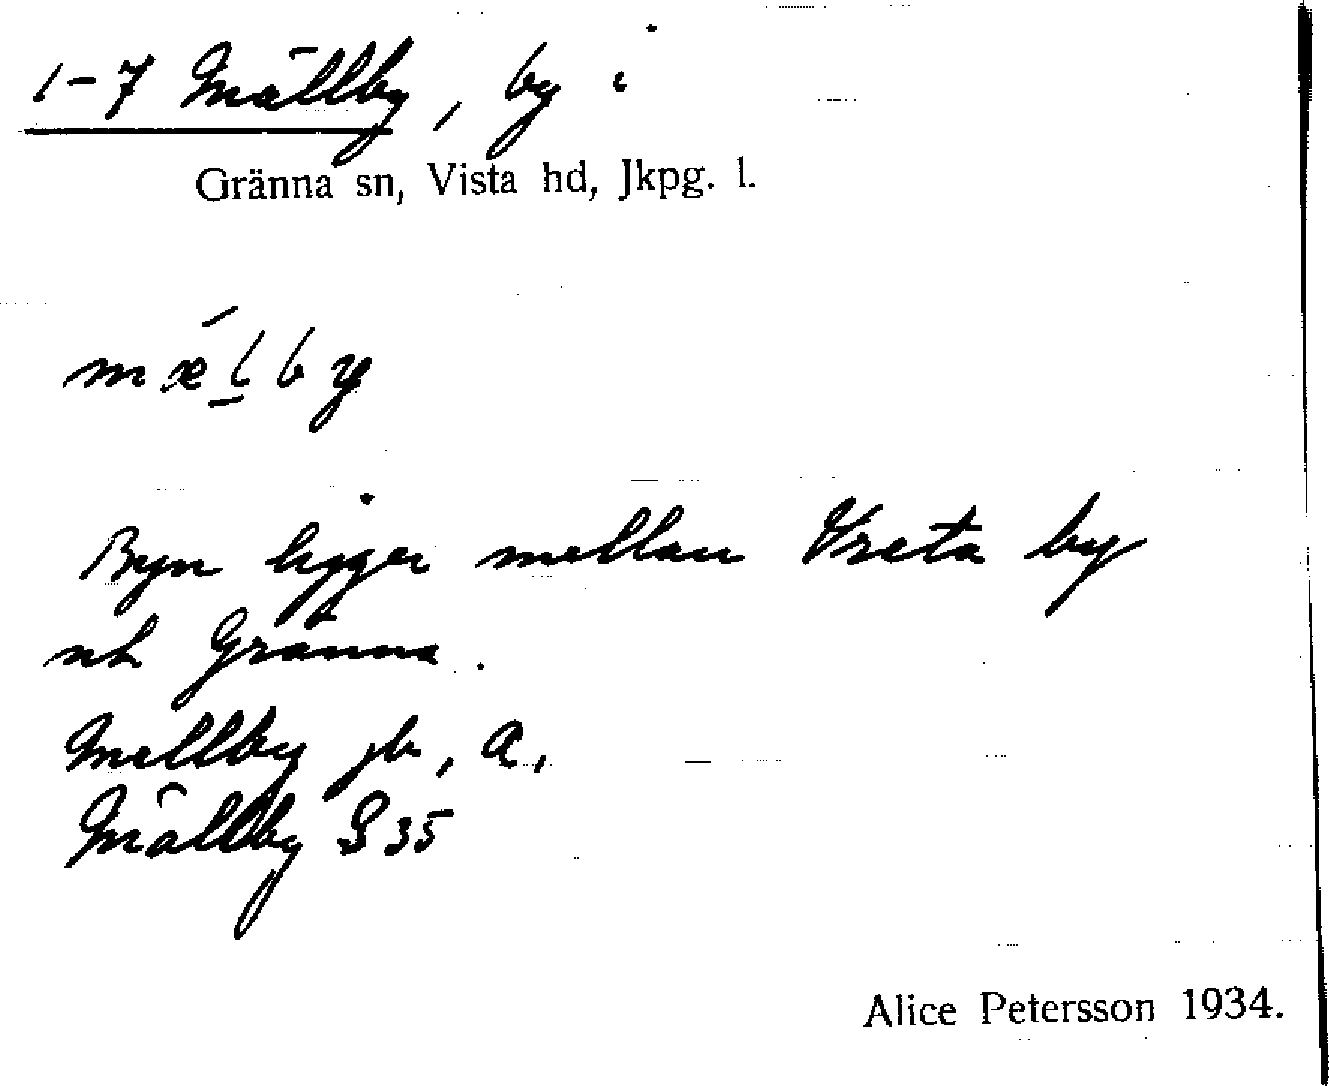 1-7 Mällby, by i
Gränna sn, Vista hd, Jkpg. l.
mǽḻby
Byn ligger mellan Vreta by
och Gränna.
Mellby jb, a,
Mällby S 35
Alice Petersson 1934.